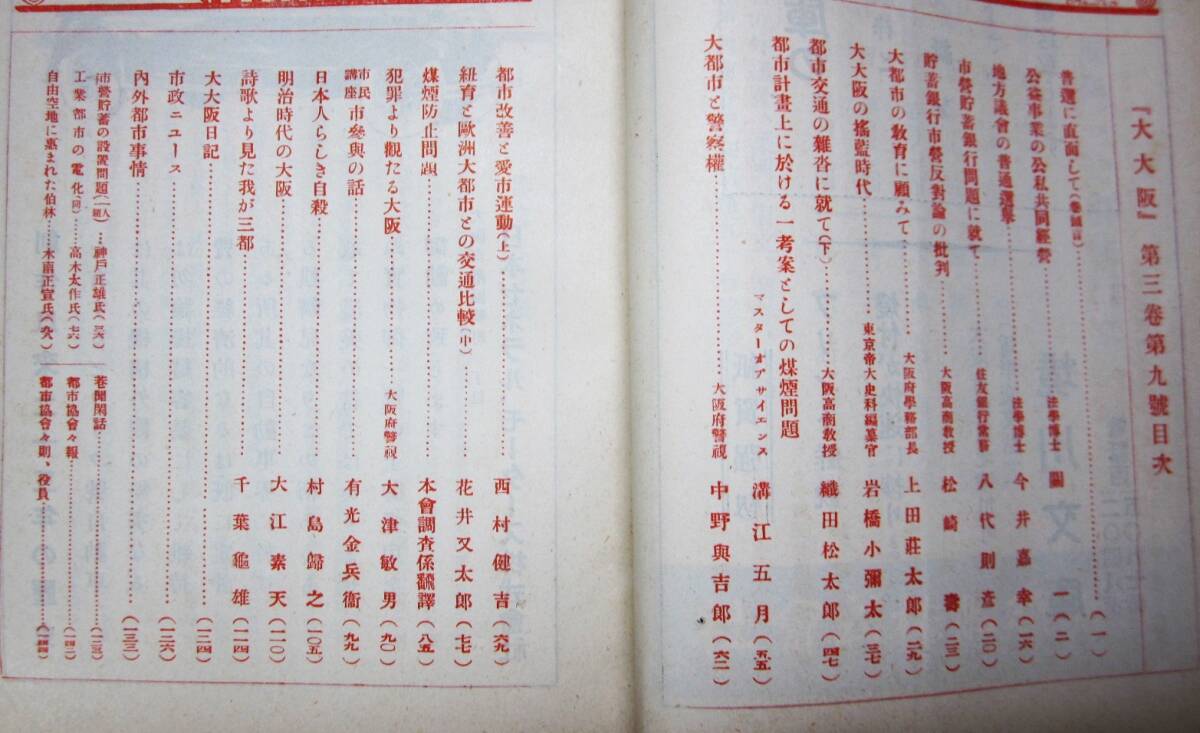 『大大阪』第三卷第九號目次
普選に直面して(卷頭言)……(一)
公益事業の公私共同經營……法學博士 關 一(二)
地方議會の普通選擧……法學博士 今井嘉幸(一六)
市營貯蓄銀行問題に就て……住友銀行常務 八代則彦(二〇)
貯蓄銀行市營反對論の批判……大阪高商敎授 松崎 壽(二三)
大都市の敎育に顧みて……大阪府學務部長 上田莊太郎(二九)
大大阪の搖籃時代……東京帝大史料編纂官 岩橋小彌太(三七)
都市交通の雜沓に就て(下)……大阪高商敎授 織田松太郎(四七)
都市計畫上に於ける一考案としての煤煙問題
マスターオブサイエンス 溝江五月(五五)
大都市と警察權……大阪府警視 中野與吉郎(六二)
都市改善と愛市運動(上)……西村健吉(六九)
紐育と歐洲大都市との交通比較(中)……花井又太郎(七七)
煤煙防止問題……本會調査係飜譯(八五)
犯罪より觀たる大阪……大阪府警視 大津敏男(九〇)
市民講座 市參與の話……有光金兵衞(九九)
日本人らしき自殺……村島歸之(一〇五)
明治時代の大阪……大江素天(一一〇)
詩歌より見た我が三都……千葉龜雄(一一四)
大大阪日記……(一二四)
市政ニユース……(一二六)
內外都市事情……(一三三)
市營貯蓄の設置問題(一人一題)……神戶正雄氏(三六)
巷聞閑話……
工業都市の電化(同)……高木太作氏(七六)
都市協會々報……(一四二)
自由空地に惠まれた伯林……木南正宣氏(九八)
都市協會々則、役員……(一四四)